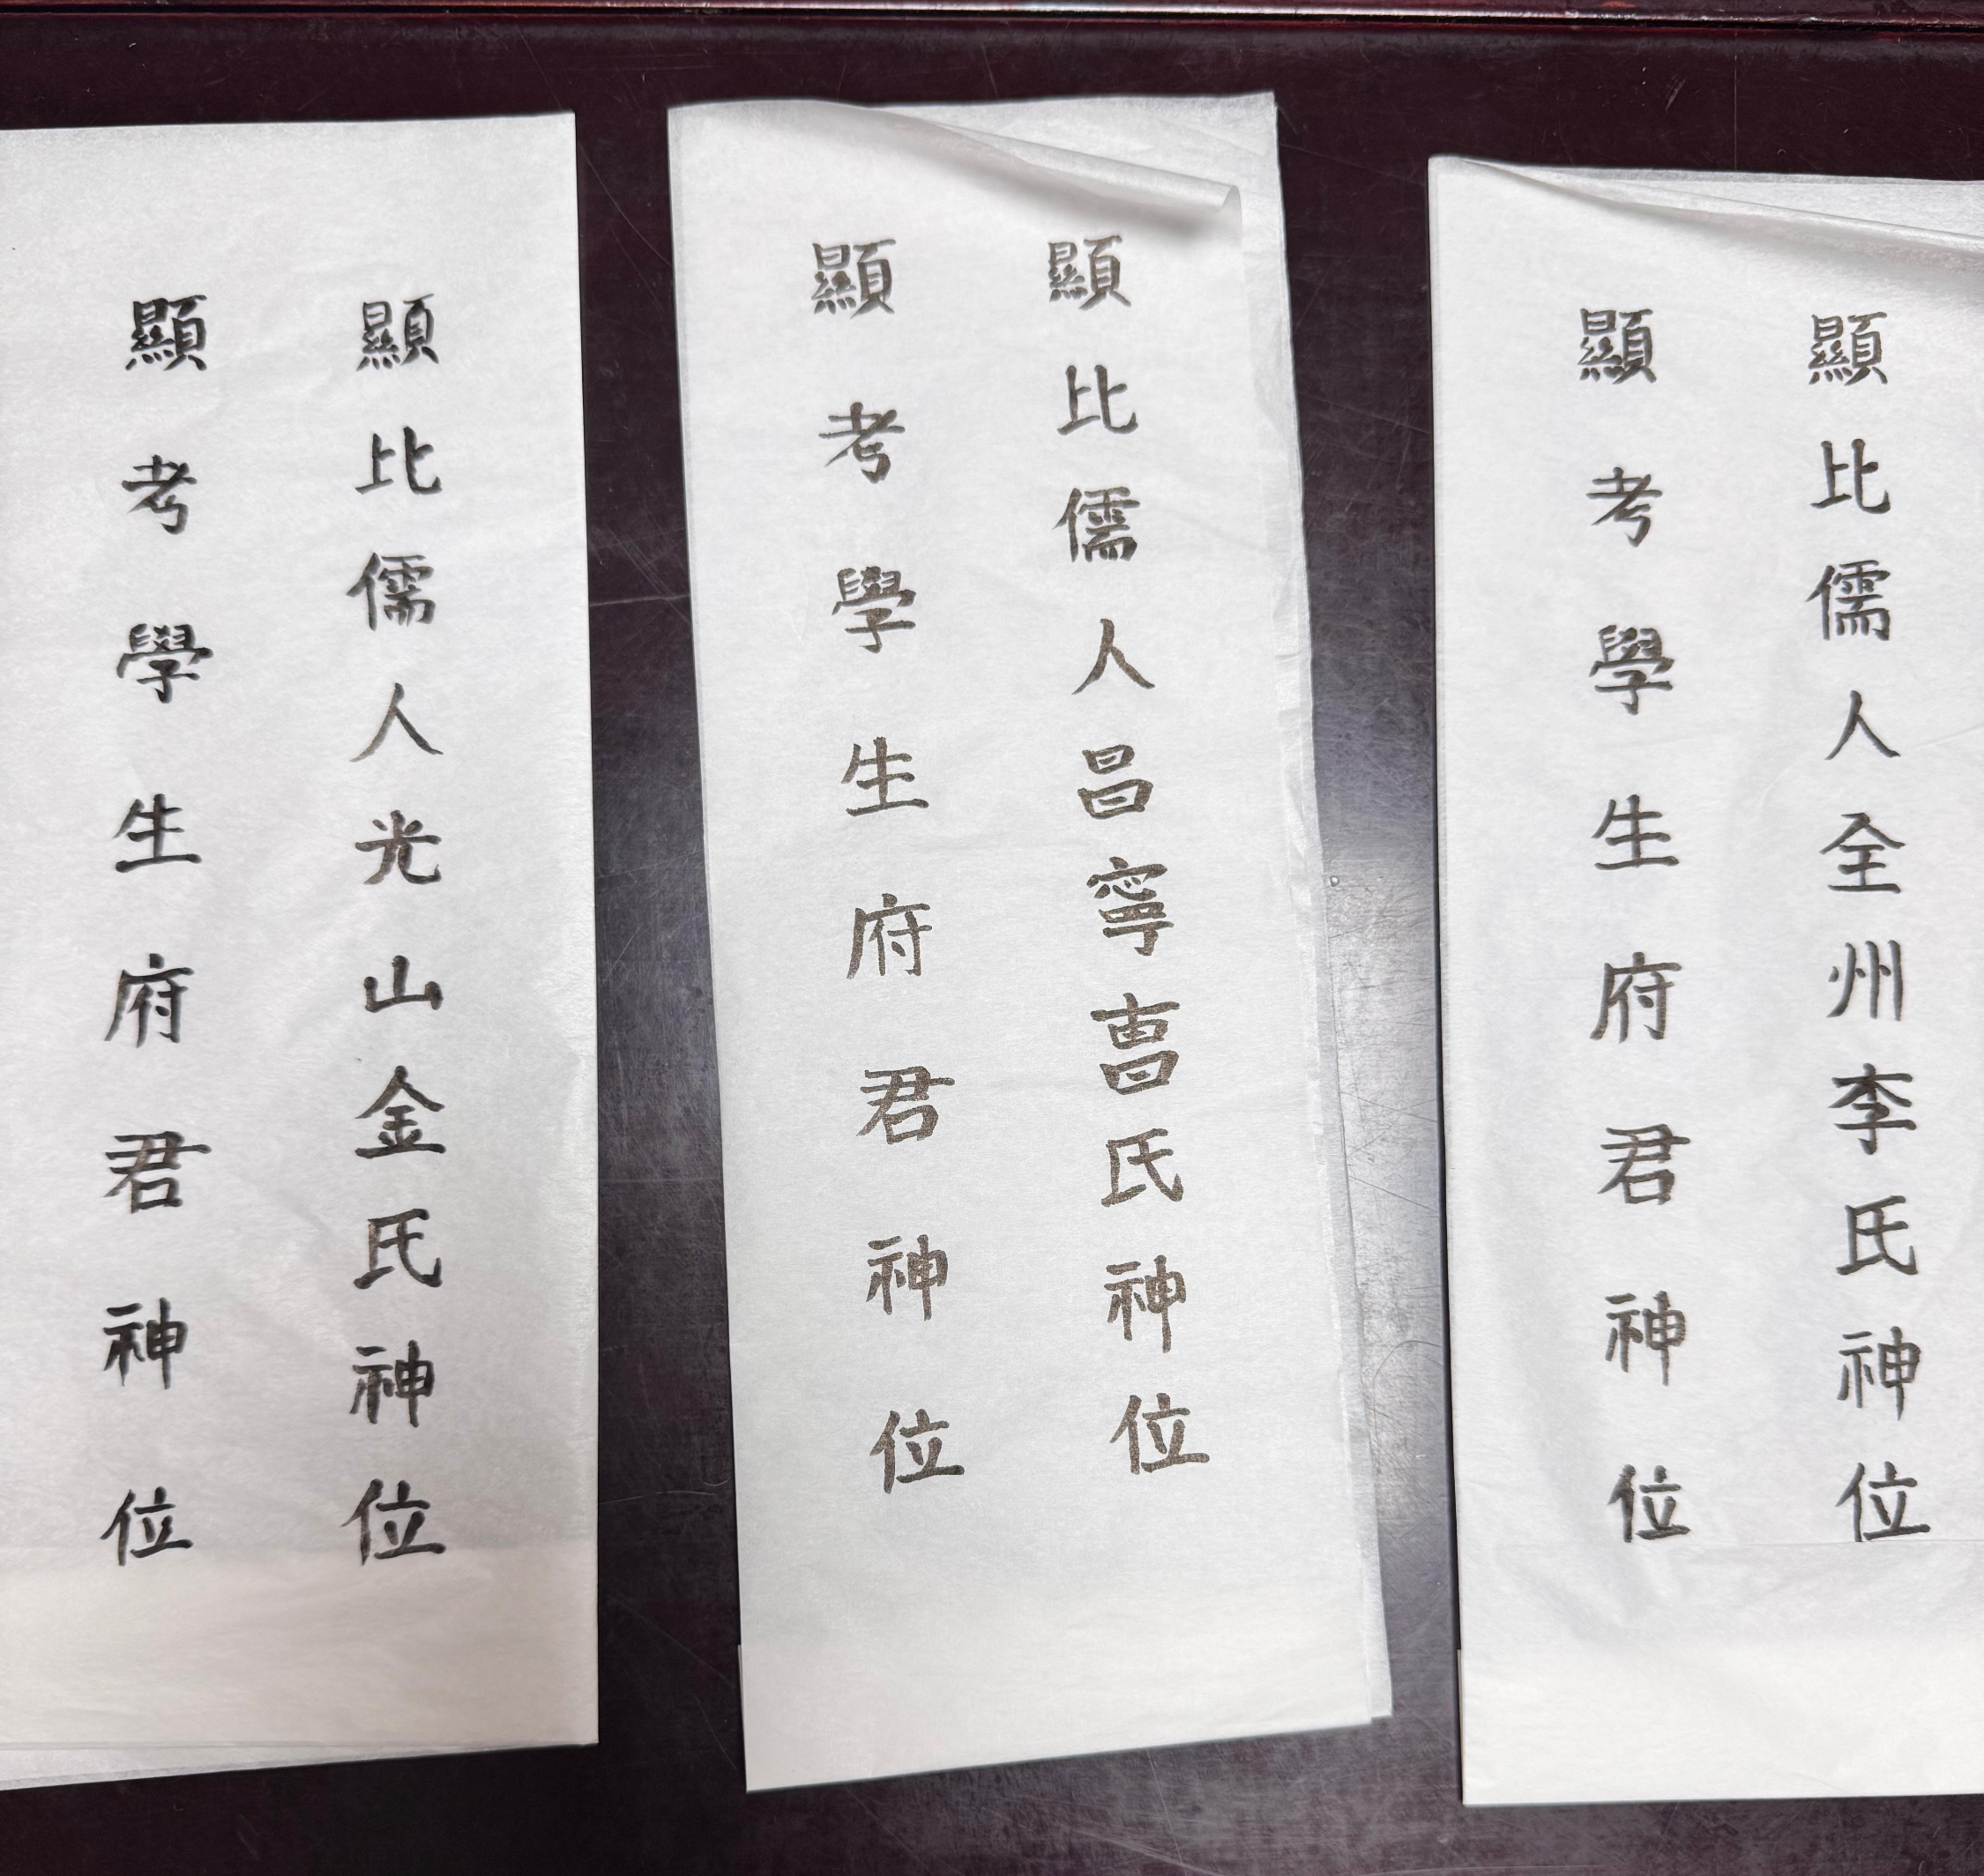 顯考學生府君神位
顯比儒人光山金氏神位
顯考學生府君神位
顯比儒人昌寧曺氏神位
顯考學生府君神位
顯比儒人全州李氏神位